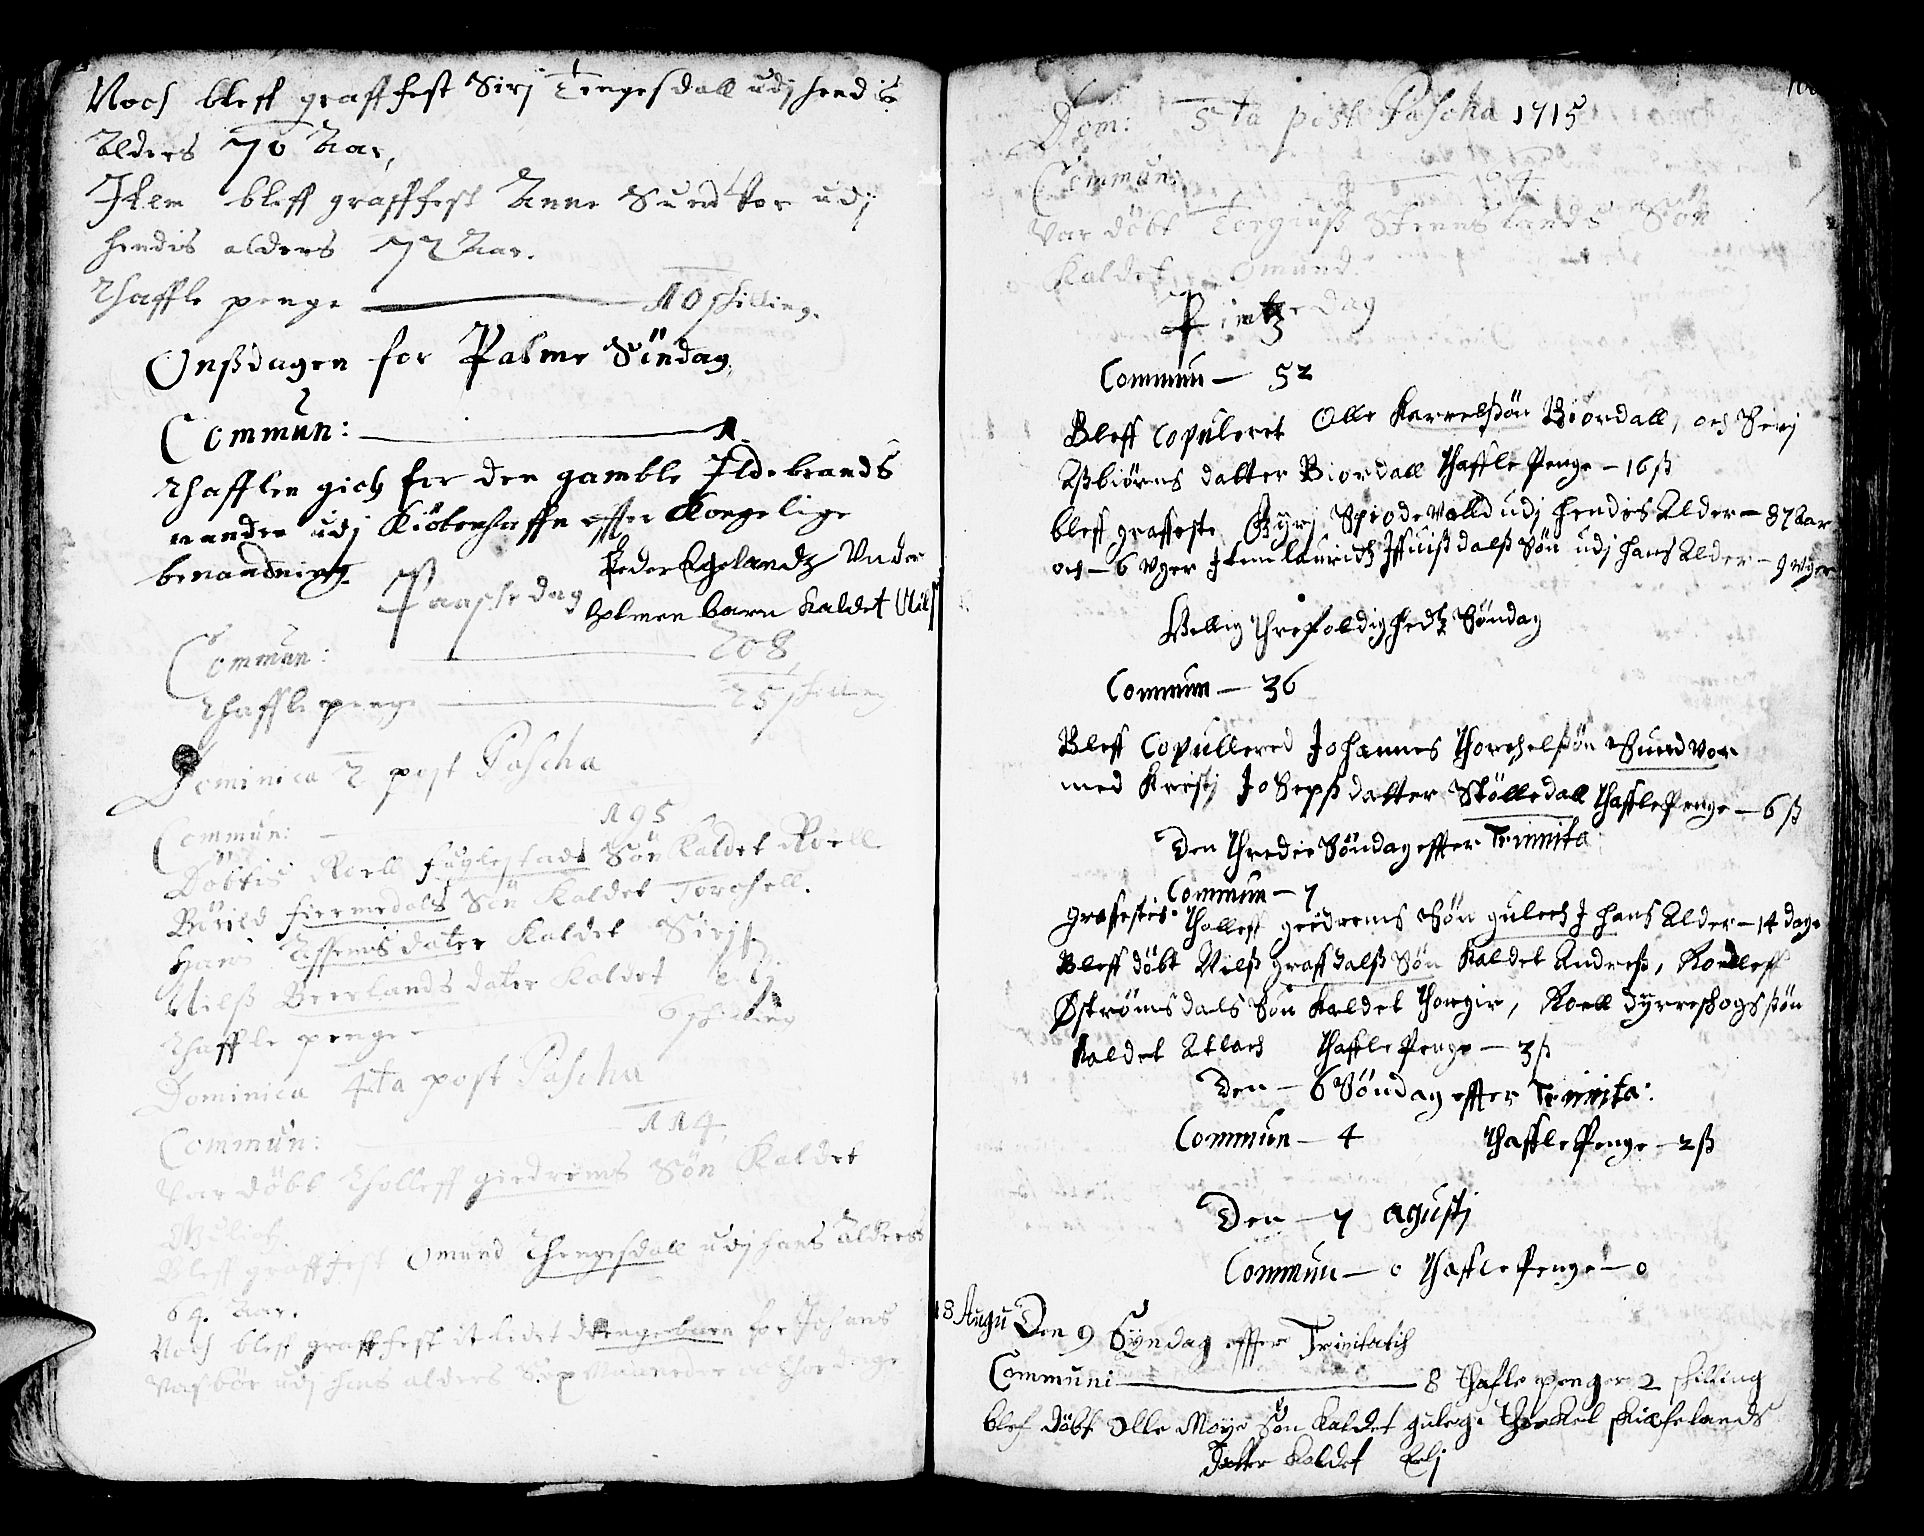 Noch bleff grafffest Sirj Tengesdall udj hendis
Alders 70 Aar,
Item bleff grafffest Anne Sundvor udj
hendis alders 72 Aar.
Thaffle penge 10 shilling.
Onßdagen for Palme Söndag
Commun: 1
Thafflen gich for den gamble Ildebrands
manden udj Kiöbenhaffn effter Kongelige
benaadning.
Peder Egelandz Under
Holmen barn kaldet Nilß
Paaske dag
Commun: 208
Thaffle penge 25 shilling
Dominica 2 post Pascha
Commun: 195
Döbtis Roell fuglestads Sön kaldet Roell
Bärild fiermedals Sön kaldet Torchell.
Hans Assems dater kaldet Sirj
Nilß Beerlands dater kaldet
Thaffle penge 6 shilling
Dominica 4ta post Pascha
Commun: 114
Var döbt Tholleff giedrems Sön kaldet
Gulich
Bleff grafffest Omund Thengesdall udj hans alders
69. Aar.
Noch bleff grafffest it lidet drengebarn for Johans
udj hans alders Sex Maaneder
Dom: 5ta post Pascha 1715
Commun:
Var döbt Torgiuß Steenslands Sön
kaldet Omund.
Pintze dag
Commun — 52
Bleff Copuleret Olle Karrelßön Biördall, och Serj
Aßbiörns datter Biordall Thaffle Penge — 16 ß
bleff graffeste Gyrj Spiodevolld udj hendes Alder — 87 Aar
och — 6 Uger Item Lauridz Iffuißdalß Sön udj hans Alder — 9 uger
Hellig Threfoldighedz Söndag
Commun — 36
Bleff Copullered Johannes Thorchelßön Sundvor
med Kristj Josepß datter Stölledall Thaffle Penge — 6 ß
Den Thredie Söndag effter Trinnita
Commun — 7
graffestes Tholleff giedrems Sön gulech I hans Alder — 14 dage
Bleff döbt Nilß graffdalß Sön kaldet Andreß, Roelleff
Øströmsdals Sön kaldet Thorgir, Roell dyrreskogs ßön
kaldet Atlach Thaffle Penge — 3 ß
Den — 6 Söndag effter Trinnita:
Commun — 4 Thaffle Penge — 2 ß
Den — 7 agustj
Commun — 0 Thaffle Penge — 0
18 Augu Den 9 Syndag effter Trinitatis
Communi 8 Thafle penger 2 skilling
blef döbt Olle Moye Sön kaldet gulege Thorkel skiefelands
datter kaldet Elj